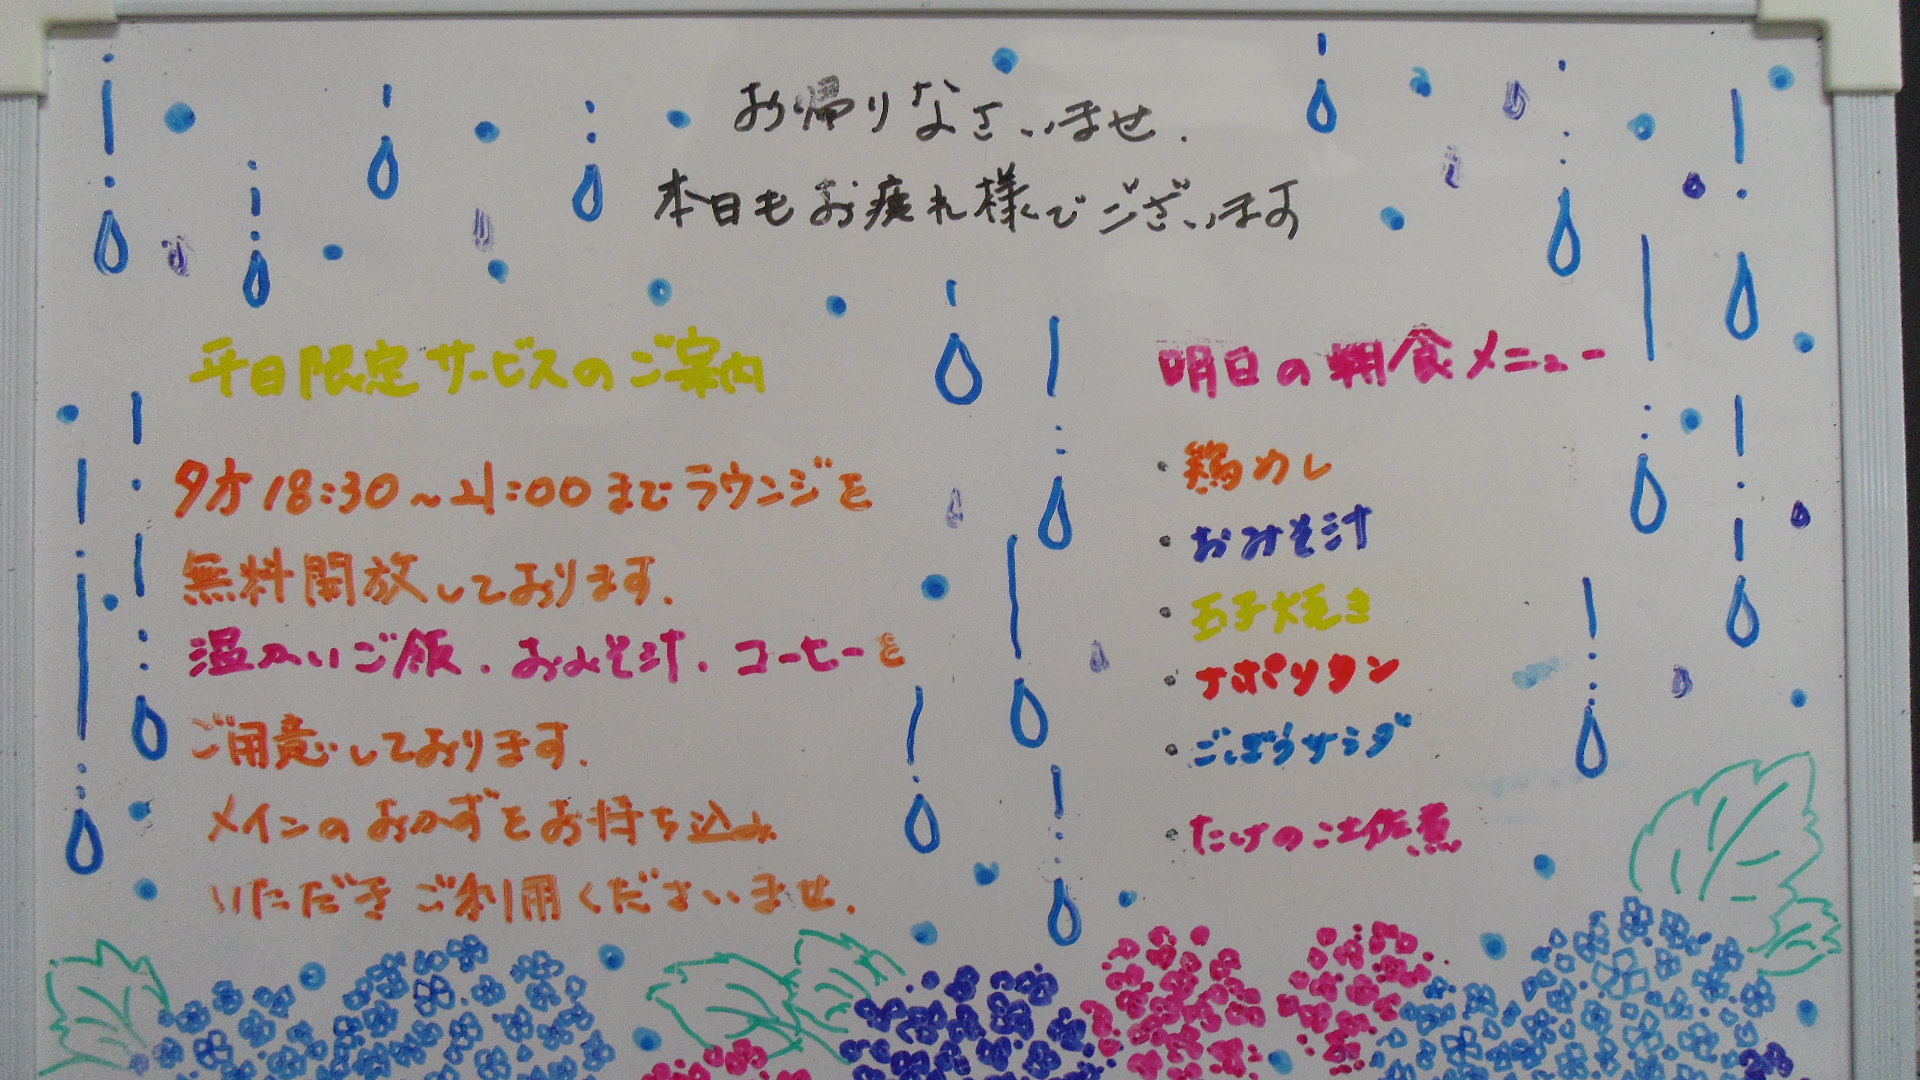 お帰りなさいませ.
本日もお疲れ様でございます
平日限定サービスのご案内
夕方18:30~21:00までラウンジを
無料開放しております.
温かいご飯.おみそ汁.コーヒーを
ご用意しております.
メインのおかずをお持ち込み
いただきご利用くださいませ.
明日の朝食メニュー
・鶏カレ
・おみそ汁
・玉子焼き
・ナポリタン
・ごぼうサラダ
・たけのこ土佐煮